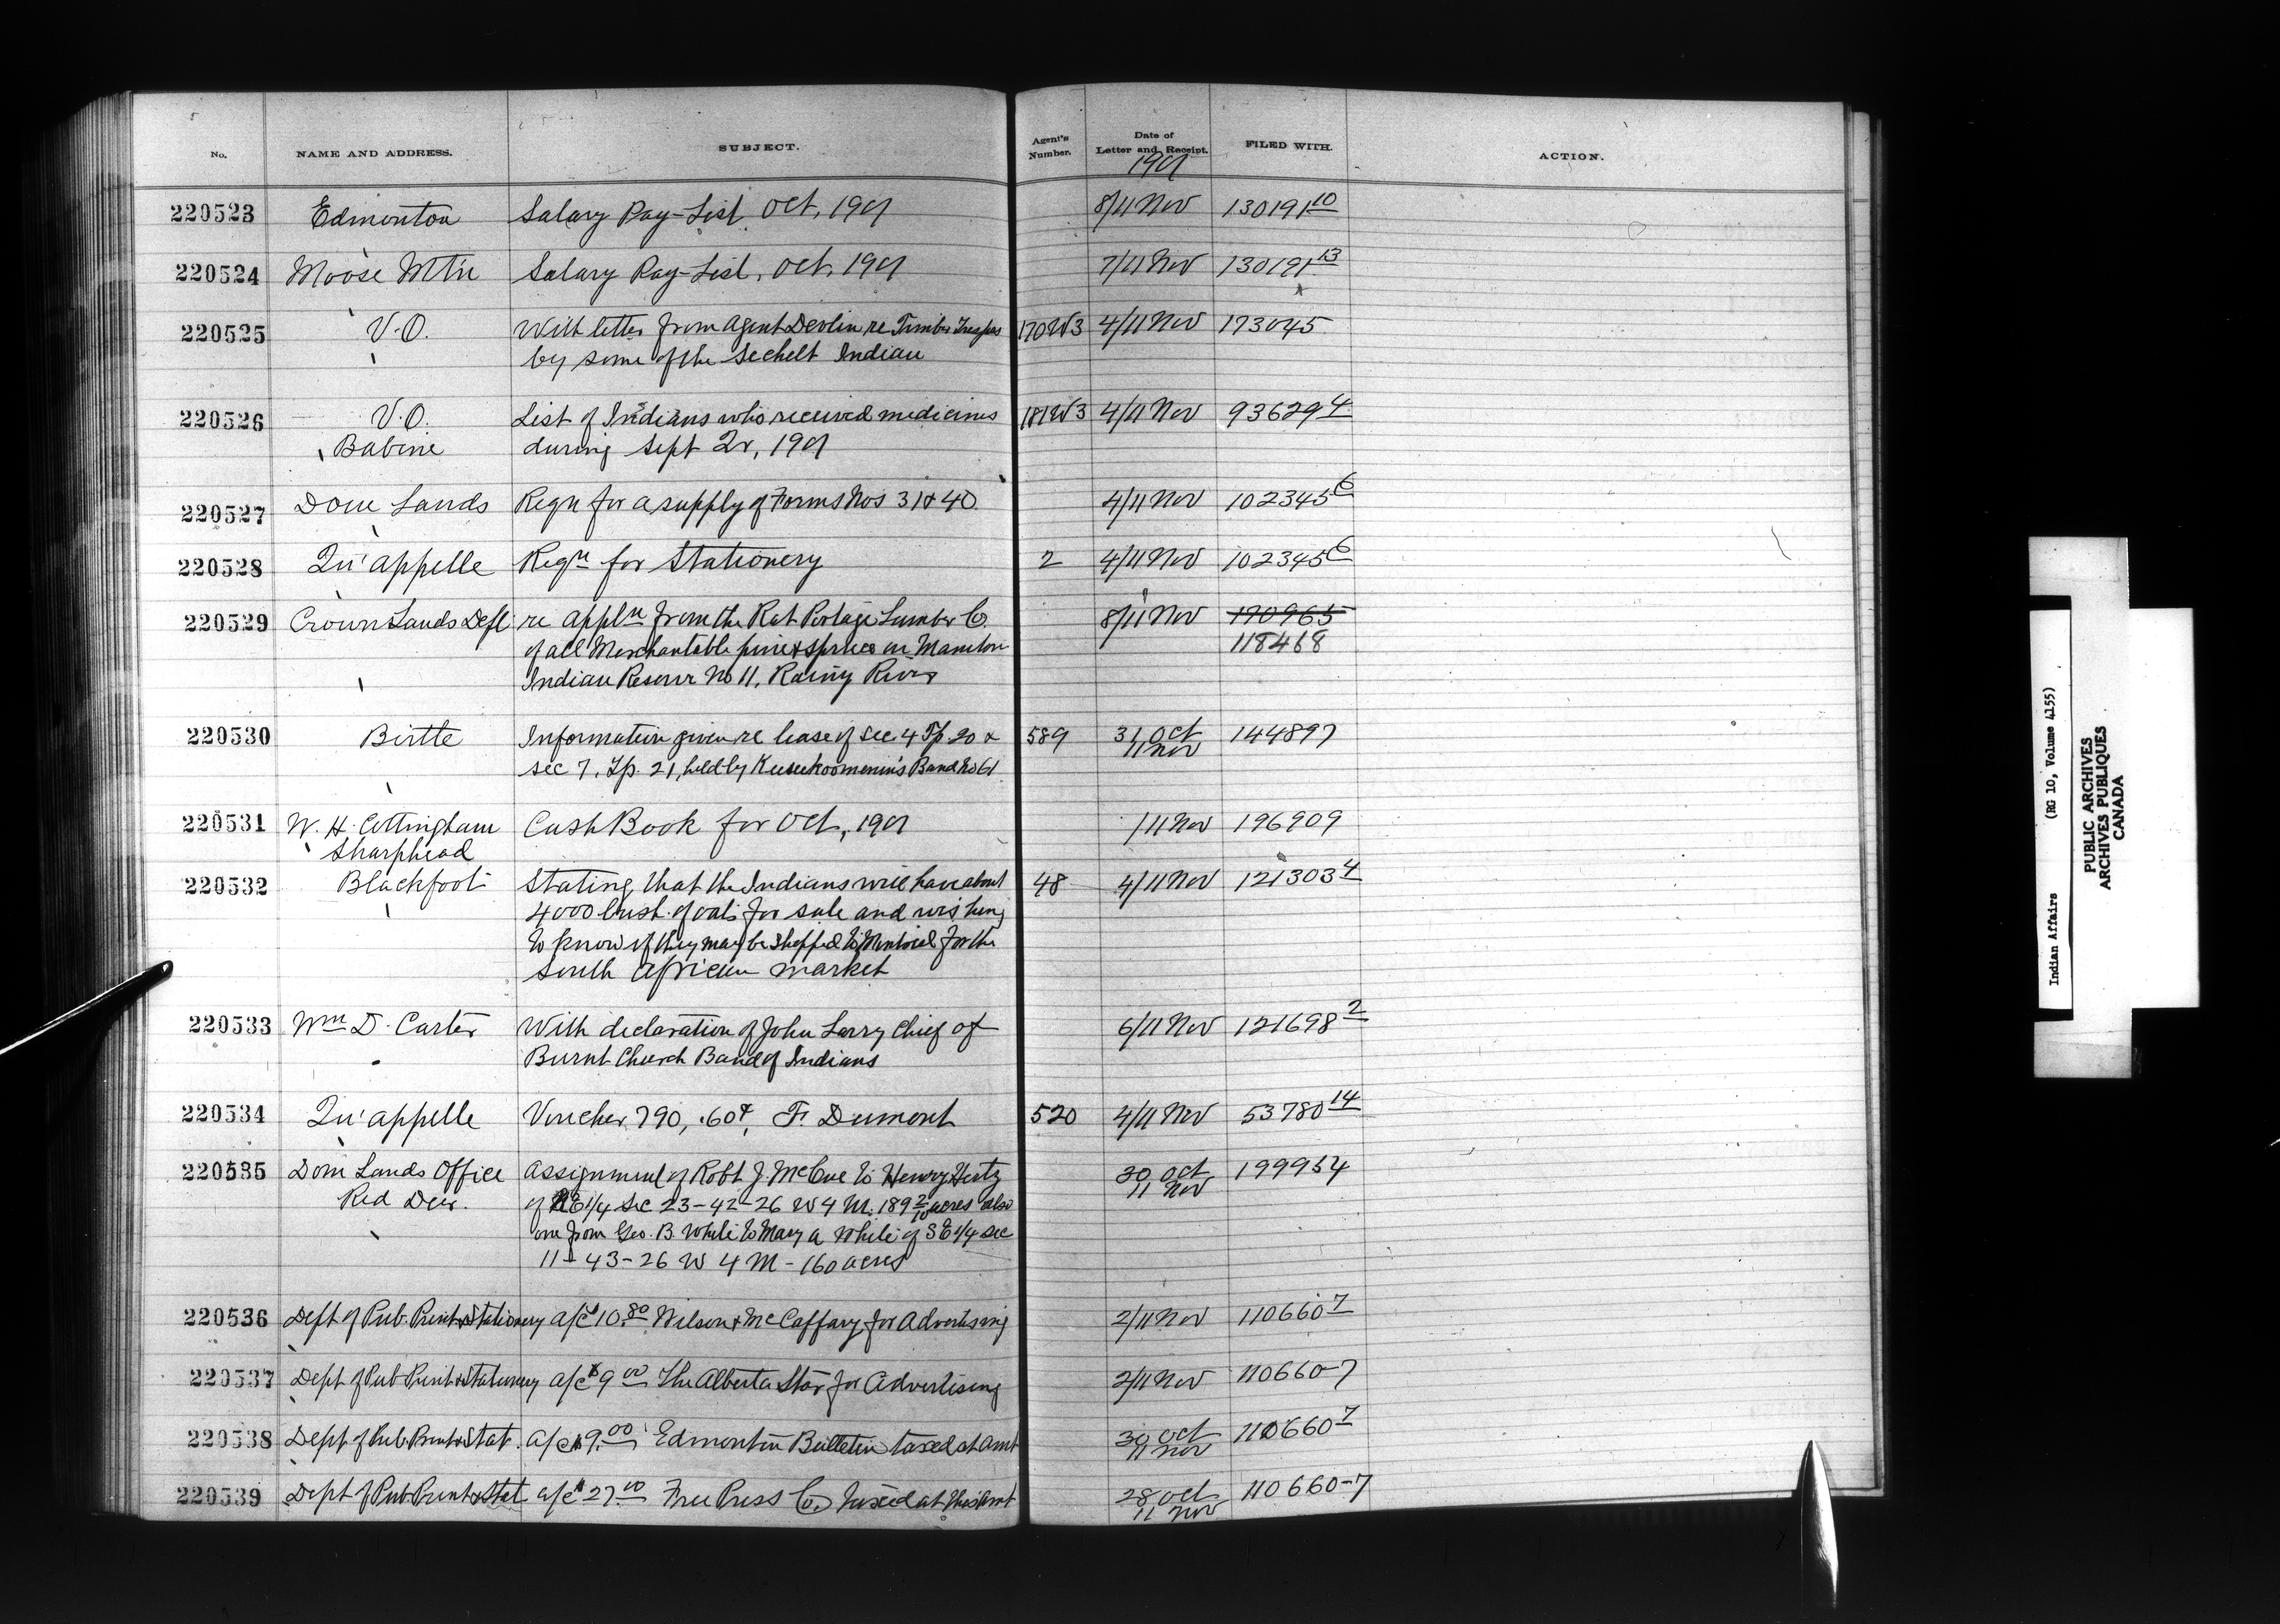 No. NAME AND ADDRESS. SUBJECT. Agent's Number. Date of Letter and Receipt. FILED WITH. ACTION.
1901
220523 Edmonton Salary Pay-List, Oct, 1901 8/11 Nov 130191 10
220524 Moose Mtn Salary Pay-List, Oct, 1901 7/11 Nov 130191 13
220525 V.O. With letter from Agent Devlin re Timber Trespass 170W3 4/11 Nov 173045
by some of the Sechelt Indian
220526 V.O. List of Indians who received medicines 181W3 4/11 Nov 93629 4
Babine during Sept Qr, 1901
220527 Dom Lands Reqn for a supply of Forms Nos 31 & 40 4/11 Nov 102345 6
220528 Qu'appelle Reqn for Stationery 2 4/11 Nov 102345 6
220529 Crown Lands Dept re appln from the Rat Portage Lumber Co. 8/11 Nov 170965
of all Merchantable pine & spruce on Manitou 118468
Indian Reserve No 11, Rainy River
220530 Birtle Information given re lease of Sec 4 Tp. 20 & 589 31 Oct 144897
11 Nov
Sec 7, Tp. 21, held by Keeseekoomenin's Band No 61
220531 W. H. Cottingham Cash Book for Oct, 1901 /11 Nov 196909
Sharphead
220532 Blackfoot Stating that the Indians will have about 48 4/11 Nov 121303 4
4000 bush. of oats for sale and wishing
to know if they may be shipped to Montreal for the
South African market
220533 Wm D. Carter With declaration of John Larry Chief of 6/11 Nov 121698 2
Burnt Church Band of Indians
220534 Qu'appelle Voucher 790, .60¢, F. Dumont 520 4/11 Nov 53780 14
220535 Dom Lands Office Assignment of Robt J. McCue to Henry Hertz 30 Oct 199954
11 Nov
Red Deer. of NE 1/4 Sec 23-42-26 W 4 M. 189 2/10 acres also
one from Geo. B. White to Mary A White of SE 1/4 sec
11-43-26 W 4 M - 160 acres
220536 Dept of Pub. Print & Stationery a/c $10.80 Wilson & McCaffary for Advertising 2/11 Nov 110660 7
220537 Dept of Pub Print & Stationery a/c $9 00 The Alberta Star for Advertising 2/11 Nov 110660-7
220538 Dept of Pub. Print & Stat. a/c $9.00 Edmonton Bulletin taxed at amt 30 Oct 110660 7
11 Nov
220539 Dept of Pub. Print & Stat a/c $27 00 Free Press Co, Taxed at this amt 28 Oct 110660-7
11 Nov
Indian Affairs (RG 10, Volume 4155)
PUBLIC ARCHIVES
ARCHIVES PUBLIQUES
CANADA